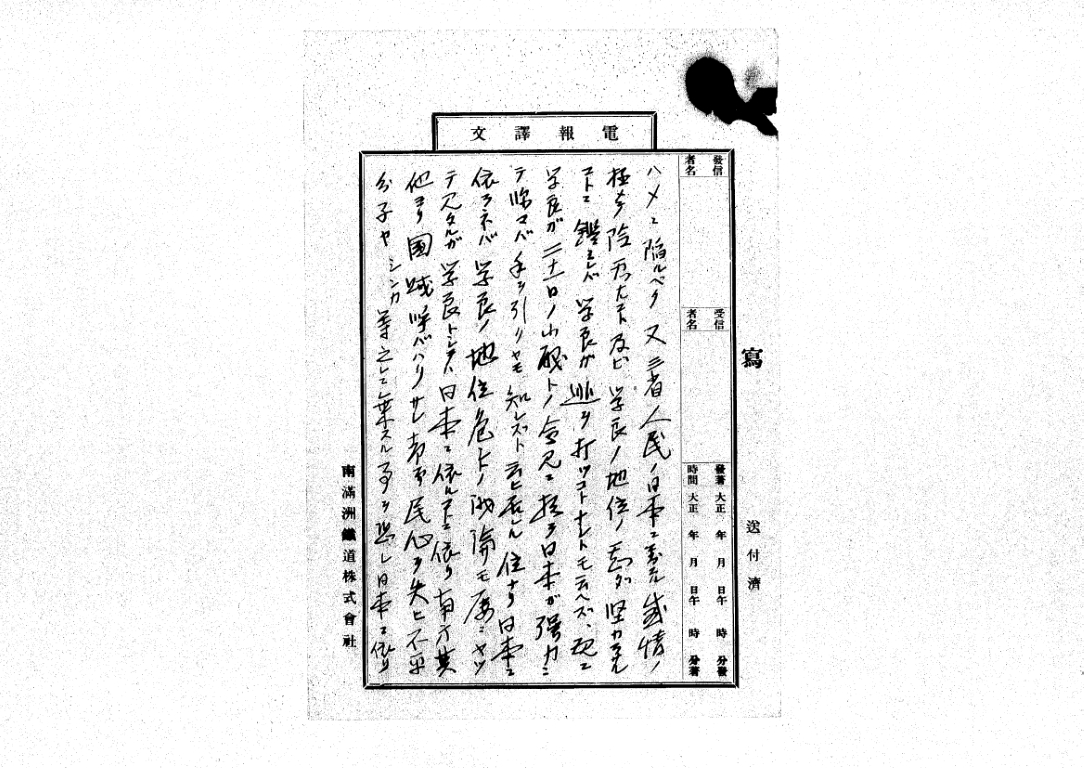 電報譯文
發信者名
受信者名
發著 大正 年 月 日午 時 分發
時間 大正 年 月 日午 時 分著
ハメニ陥ルベク又三省人民ノ日本ニ対スル感情ノ
極メテ険悪ナルコト及ビ学良ノ地位ノ堅カラザル
コトニ鑑ミレバ学良ガ打ツコトナシトモ云ヘズ、現ニ
学良ガ二十一日ノ小磯トノ会見ニ於テ日本ガ強力ニ
テ臨マバ手ヲ引クヤモ知レズト云ヒ居レル位ナリ日本ニ
依ラネバ学良ノ地位危シトノ議論モ屡ミヤツ
テ見タルガ学良トシテハ日本ニ依ルコトニ依リ南方其
他ヨリ國賊呼バハリサレ却テ民心ヲ失ヒ不平
分子ヤシンカ等之ニ乗スル事ヲ恐レ日本ニ依リ
寫
送付濟
南滿洲鐵道株式會社